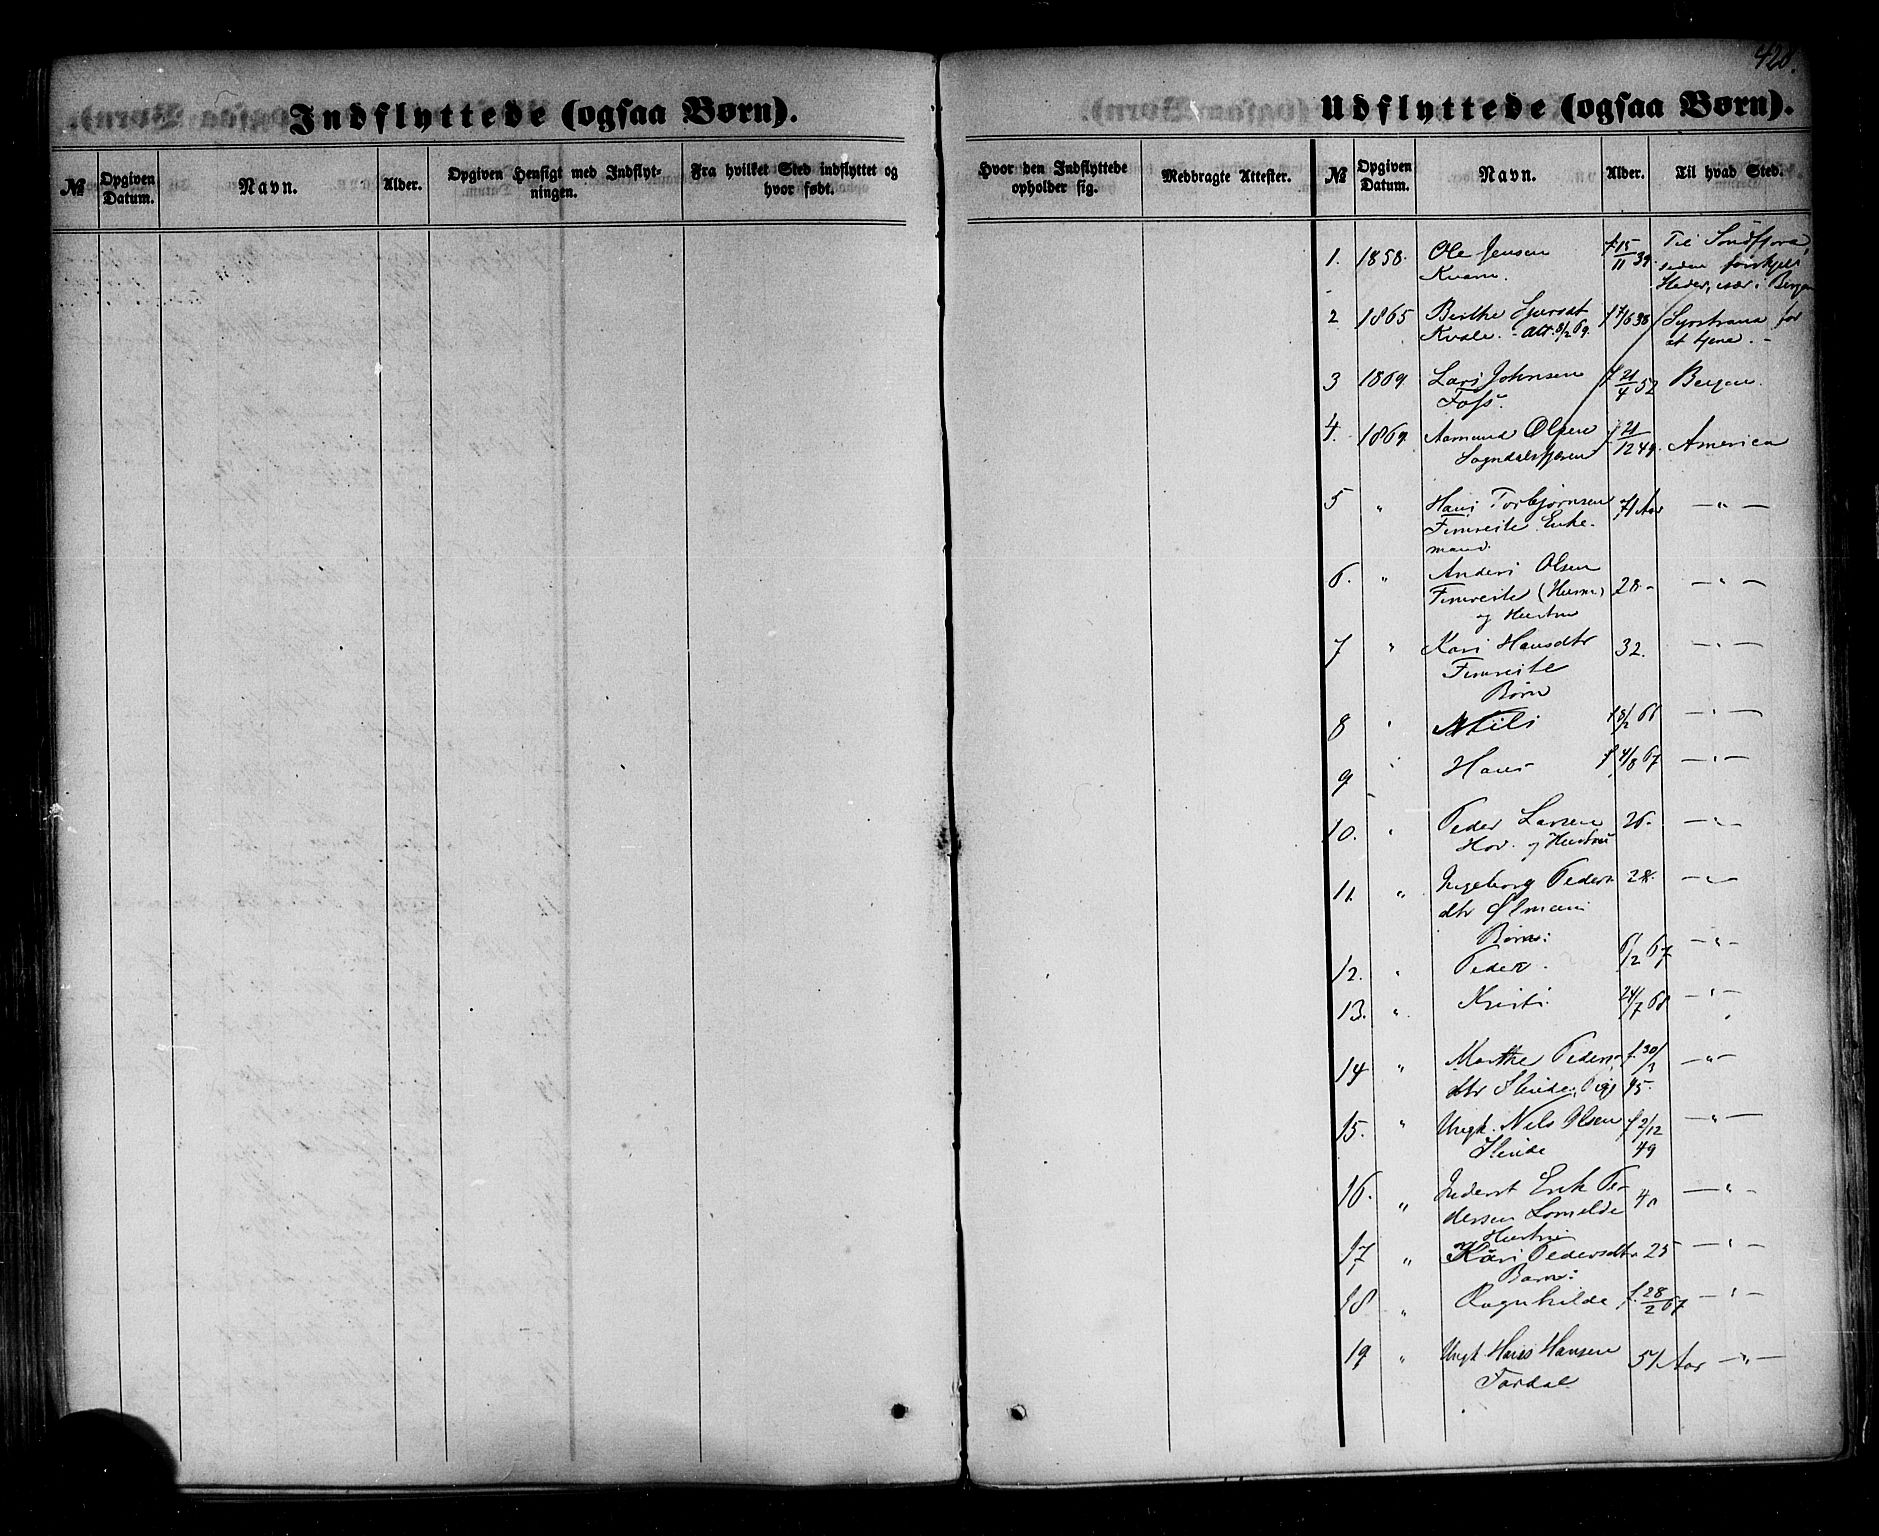 420.
Indflyttede (ogsaa Børn).
Udflyttede (ogsaa Børn).
№ Opgiven Datum. Navn. Alder. Opgiven Hensigt med Indflytningen. Fra hvilket Sted indflyttet og hvor født.
Hvor den Indflyttede opholder sig. Medbragte Attester. № Opgiven Datum. Navn. Alder. Til hvad Sted.
1. 1858. Ole Jensen f 15/11 39. Til Søndfjord,
Kvam. siden forskjell.
Steder, især i Bergen
2 1865 Berthe Sjursdt f 7/6 38 Syrstrand for
Kvale. - Att. 8/2 69. at tjene. -
3 1869 Lars Johnsen f 21/4 52 Bergen.
Foss.
4. 1869 Aamund Olsen f. 21/12 49. America
Sogndalsfjæren
5 " Hans Torbjørnsen 71 Aar — " —
Fimreite Enke-
mand.
6. " Anders Olsen 28 - — " —
Fimreite (Husm)
og Hustru
7 " Kari Hansdtr 32. — " —
Fimreite
Børn
8 " Nils f 8/2 66 — " —
9 " Hans f 4/8 67 — " —
10. " Peder Larsen 26. — " —
Hov. og Hustru
11. " Ingeborg Peders- 28. — " —
dtr Ølman
Børn:
12. " Peder. 6/2 67 — " —
13. " Kristi. 24/7 68 — " —
14 " Marthe Peders- f. 30/3 — " —
dtr Slinde, Pige 45.
15. " Ungk. Nils Olsen f 2/12 — " —
Slinde 49
16. " Inderst Erik Pe- 40 — " —
dersen Lomelde
og Hustru
17 " Kari Pedersdtr 25 — " —
Barn:
18 " Ragnhilde f. 28/2 67 — " —
19 " Ungk. Hans Hansen 51 Aar — " —
Fardal